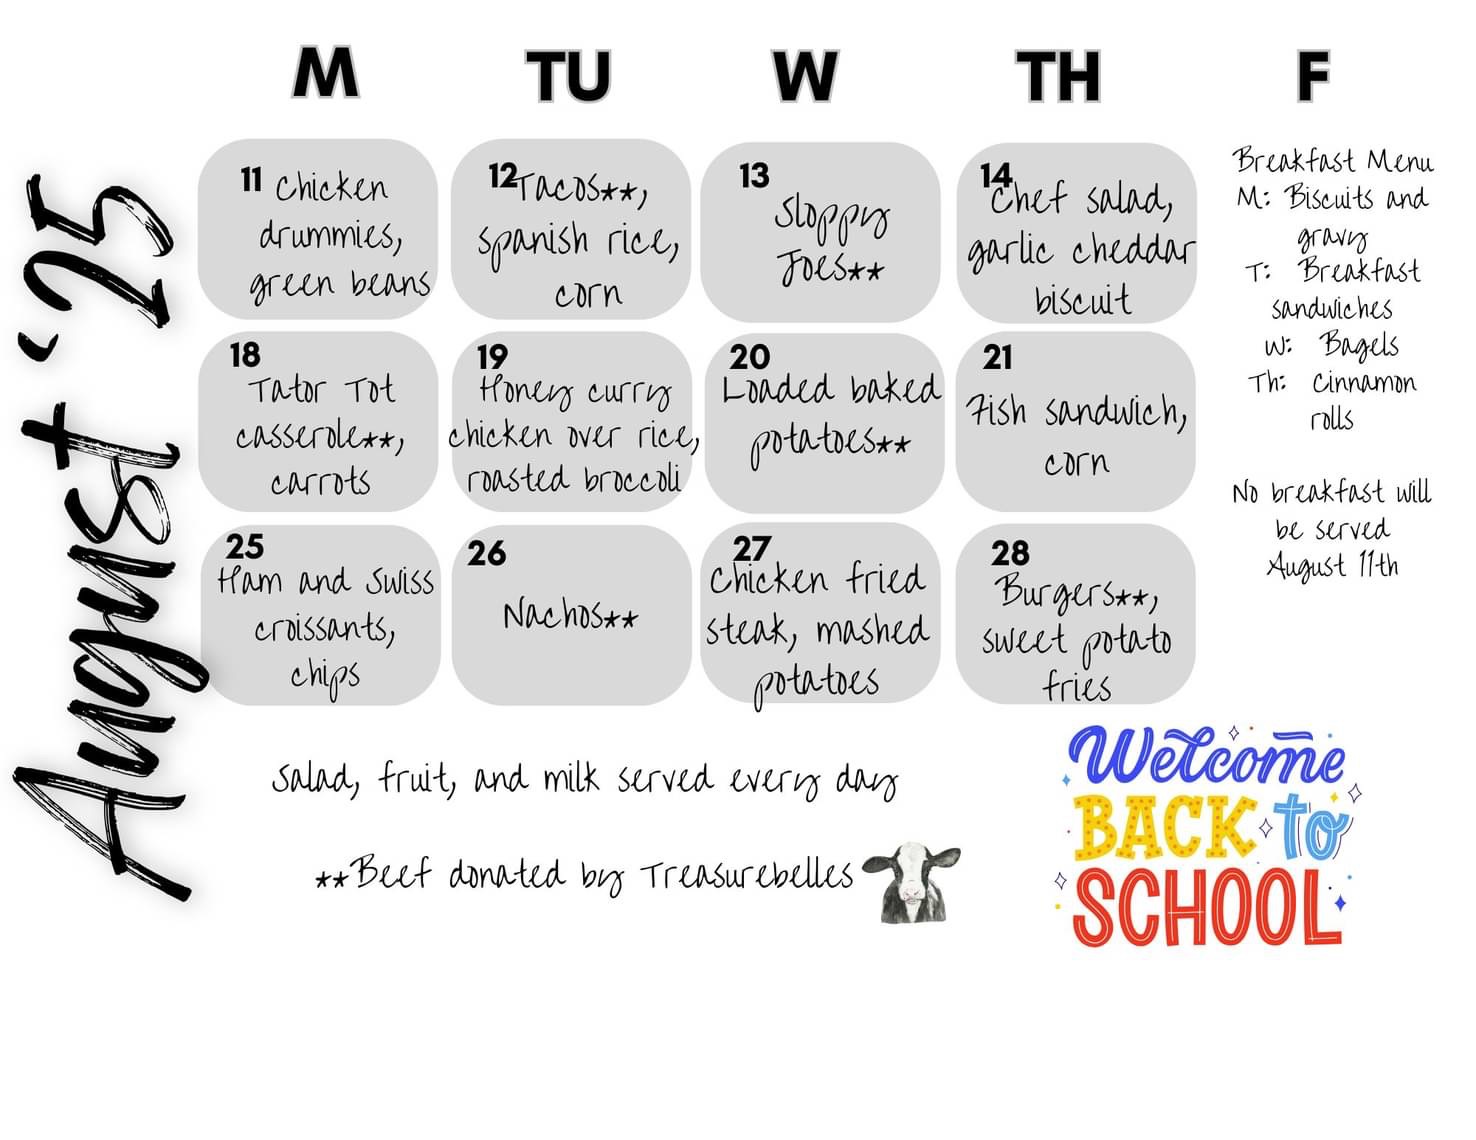 M TU W TH F
August '25
11 Chicken
drummies,
green beans
12 Tacos**,
spanish rice,
corn
13
Sloppy
Joes**
14
Chef salad,
garlic cheddar
biscuit
18
Tator Tot
casserole**,
carrots
19
Honey curry
chicken over rice,
roasted broccoli
20
Loaded baked
potatoes**
21
Fish sandwich,
corn
25
Ham and Swiss
croissants,
chips
26
Nachos**
27
Chicken fried
steak, mashed
potatoes
28
Burgers**,
sweet potato
fries
Breakfast Menu
M: Biscuits and
gravy
T: Breakfast
sandwiches
W: Bagels
Th: Cinnamon
rolls
No breakfast will
be served
August 11th
Salad, fruit, and milk served every day
**Beef donated by Treasurebelles
Welcome
BACK to
SCHOOL